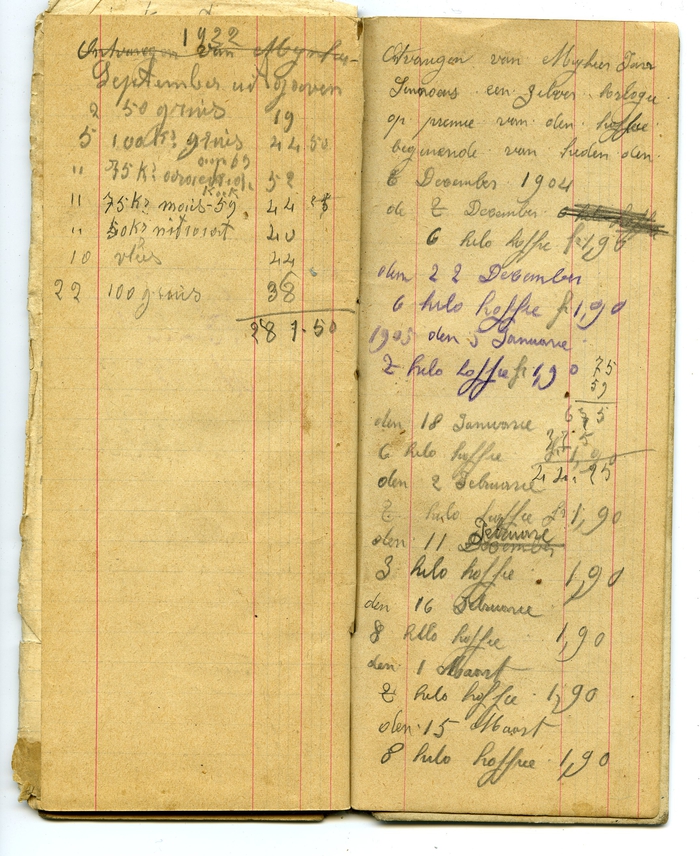 1922
Ontvangen van Mynheer
September uitgooven
2 50 gruis 19
5 100 K? gruis 44 50
" 75 K? 52
Koek
" 75 K? mais-59. 44
" 50 K? nitraat 40
10 vlas 44
22 100 gruis 38
287-50
Ontvangen van Myheer
een Zilver horlogie
op premie van den koffie
beginende van heden den
6 December 1904
de 7 December
6 kilo koffie fr 1,90
den 22 December
6 kilo koffie fr 1,90
1905 den 5 Januarie
7 kilo koffie fr 1,90 75
59
675
den 18 Januarie
375
6 kilo koffie fr 1,90
44 25
den 2 Februarie
7 kilo koffie fr 1,90
Februarie
den 11 December
3 kilo koffie 1,90
den 16 Februarie
8 kilo koffie 1,90
den 1 Maart
7 kilo koffie 1,90
den 15 Maart
8 kilo koffie 1,90